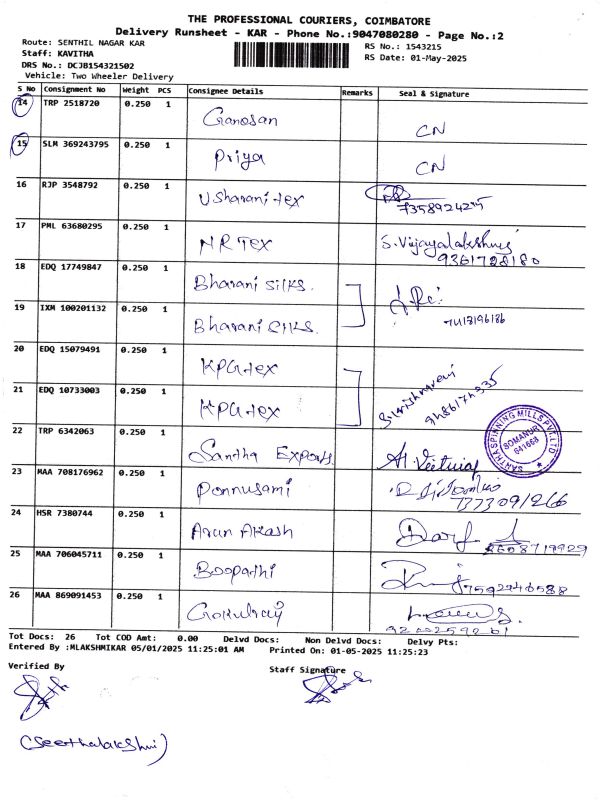 THE PROFESSIONAL COURIERS, COIMBATORE
Delivery Runsheet - KAR - Phone No.:9047080280 - Page No.:2
Route: SENTHIL NAGAR KAR RS No.: 1543215
Staff: KAVITHA RS Date: 01-May-2025
DRS No.: DCJB154321502
Vehicle: Two Wheeler Delivery
S No Consignment No Weight PCS Consignee Details Remarks Seal & Signature
14 TRP 2518720 0.250 1 Ganesan CN
15 SLM 369243795 0.250 1 Priya CN
16 RJP 3548792 0.250 1 Usharani tex
17 PML 63680295 0.250 1 NR Tex S. Vijayalakshmi
9361728180
18 EDQ 17749847 0.250 1 Bharani Silks.
19 IXM 100201132 0.250 1 Bharani Silks.
20 EDQ 15079491 0.250 1 KPG tex
21 EDQ 10733003 0.250 1 KPG tex
22 TRP 6342063 0.250 1 Santha Exports. SANTHA SPINNING MILLS PVT. LTD SOMANUR 641668
23 MAA 708176962 0.250 1 Ponnusami
7373091266
24 HSR 7380744 0.250 1 Arun Akash
25 MAA 706045711 0.250 1 Boopathi
26 MAA 869091453 0.250 1 Gokulraj
Tot Docs: 26 Tot COD Amt: 0.00 Delvd Docs: Non Delvd Docs: Delvy Pts:
Entered By :MLAKSHMIKAR 05/01/2025 11:25:01 AM Printed On: 01-05-2025 11:25:23
Verified By Staff Signature
(Seethalakshmi)